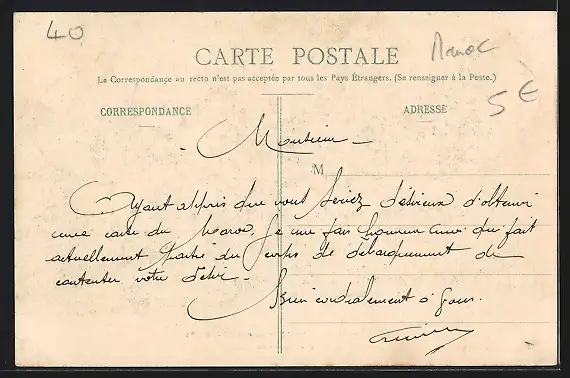 40
Maroc
CARTE POSTALE
La Correspondance au recto n'est pas acceptée par tous les Pays Étrangers. (Se renseigner à la Poste.)
5€
CORRESPONDANCE
ADRESSE
- Monsieur -
M
Ayant appris que vous seriez désireux d'obtenir
une carte du Maroc, je me fais honneur qui fait
actuellement partie du corps de débarquement de
contenter votre désir -
Bien cordialement à vous.